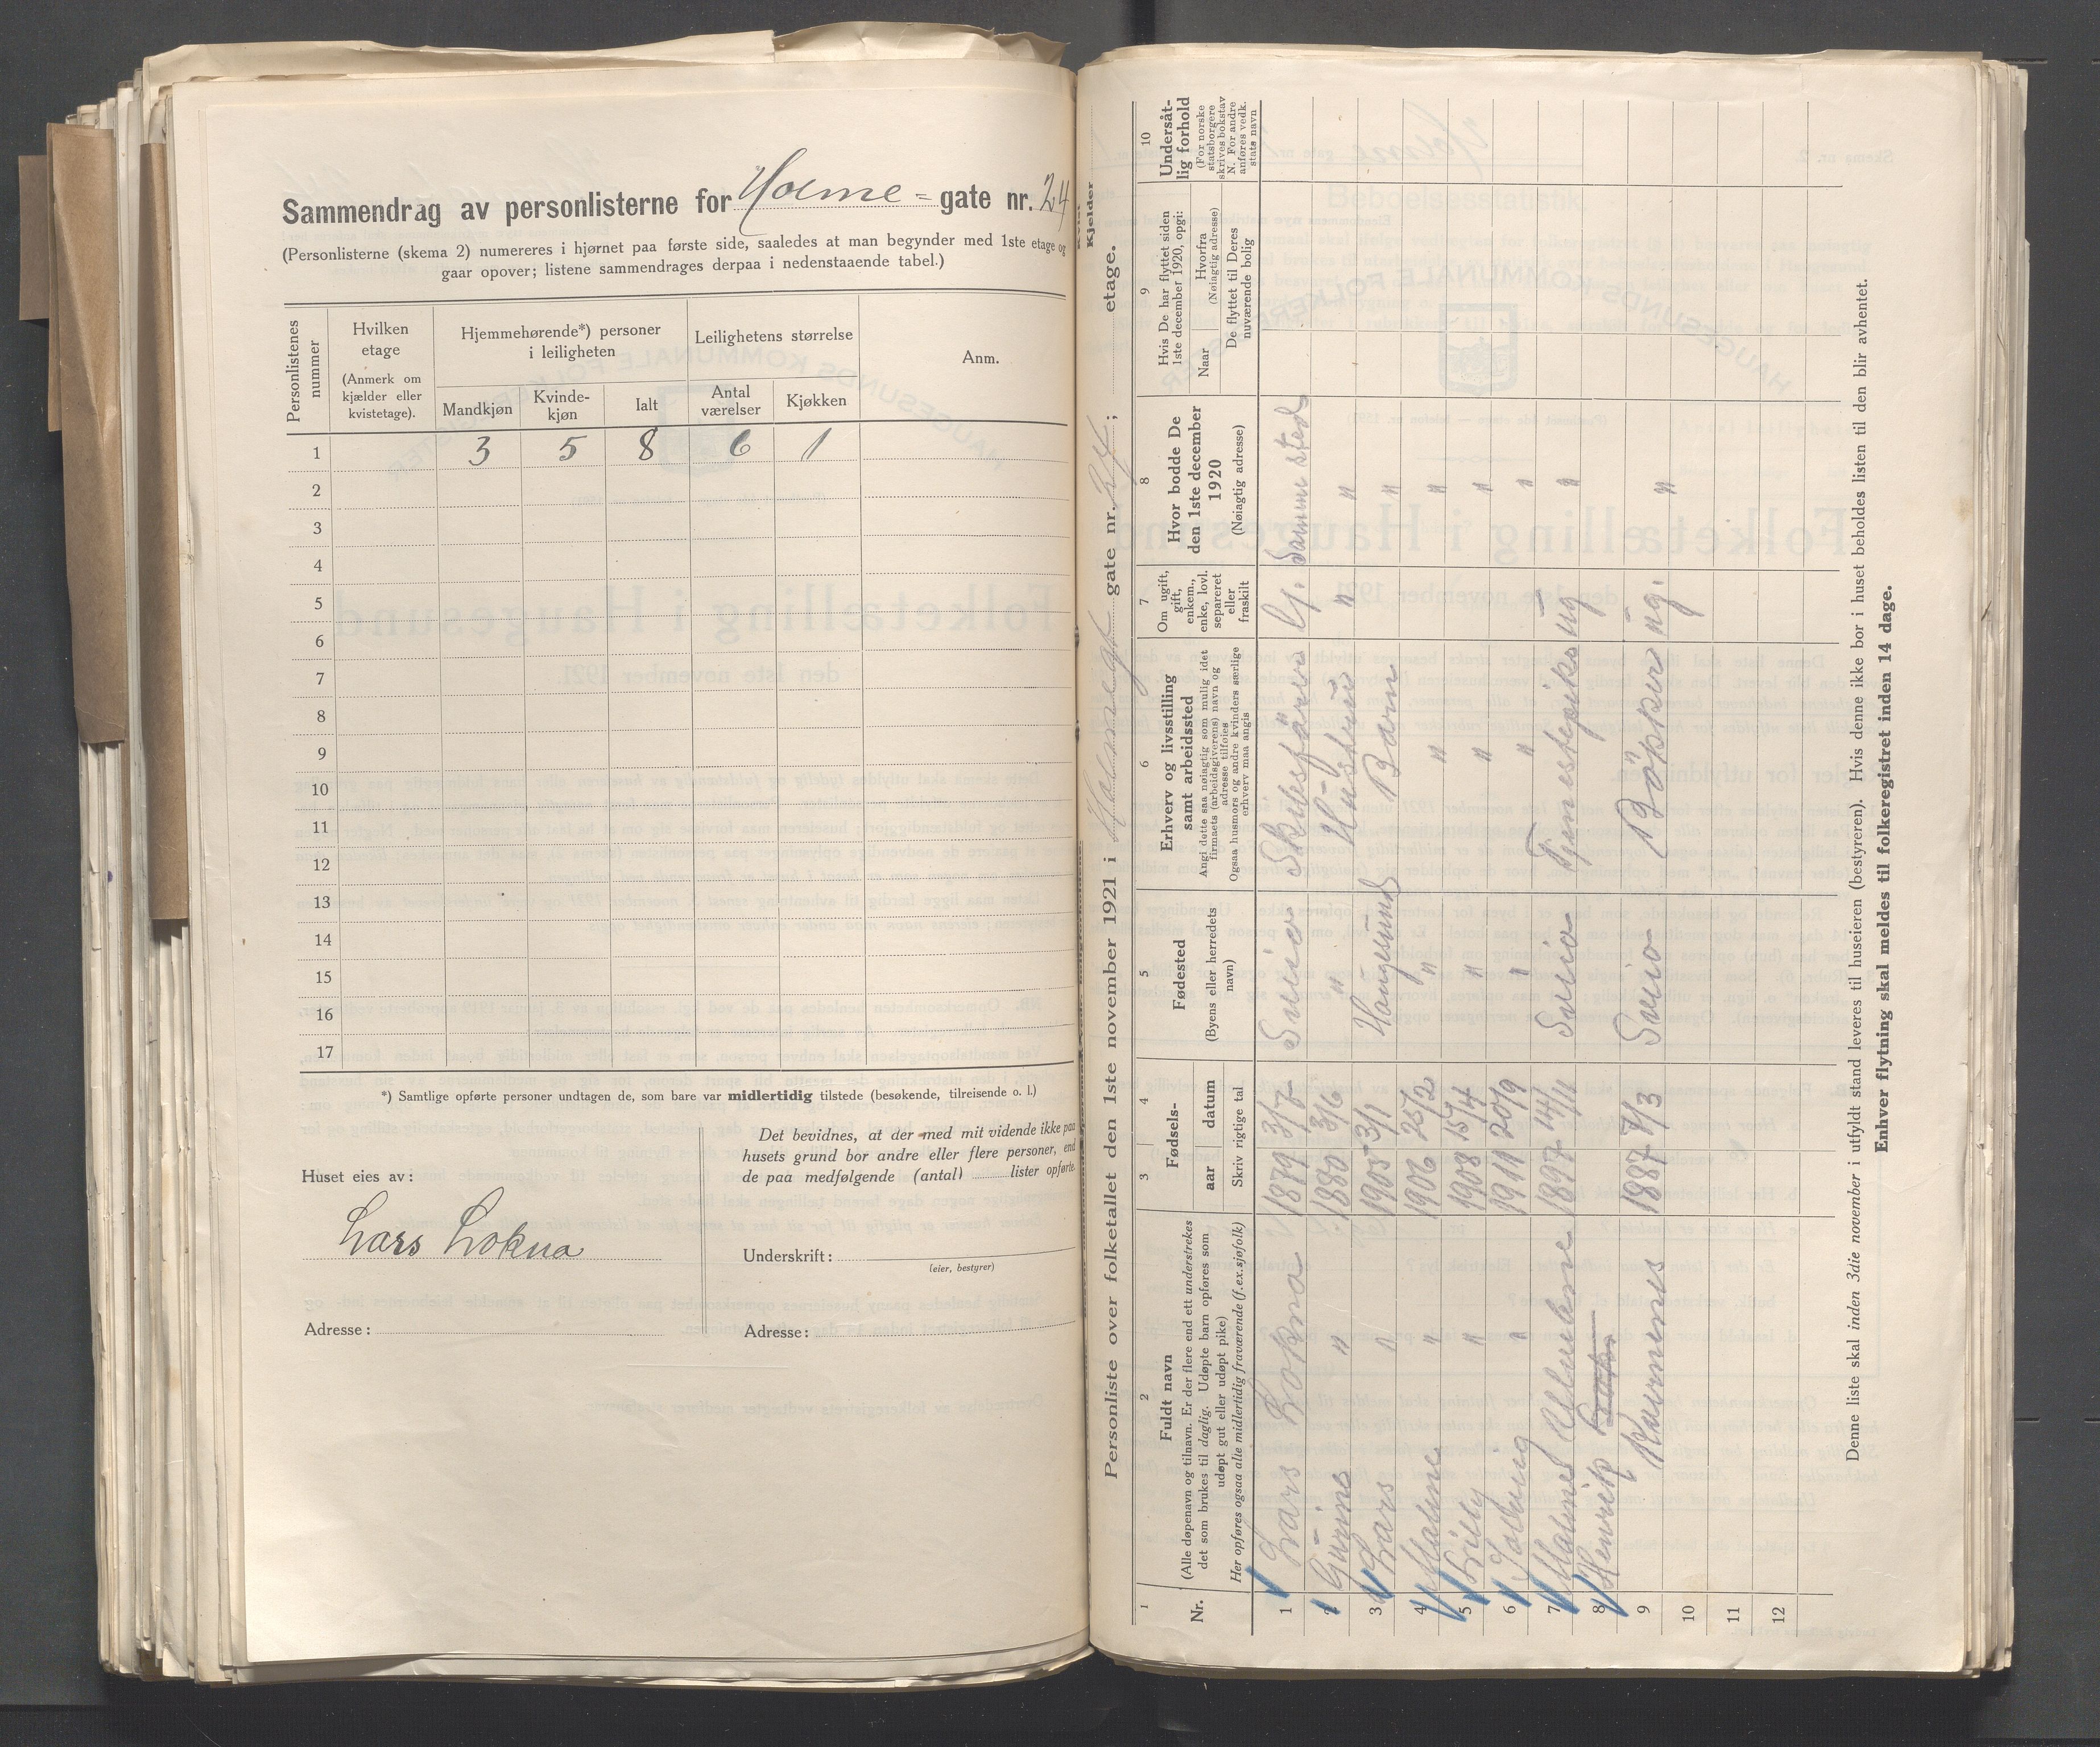 Sammendrag av personlisterne for Holme = gate nr. 24
(Personlisterne (skema 2) numereres i hjørnet paa første side, saaledes at man begynder med 1ste etage og
gaar opover; listene sammendrages derpaa i nedenstaaende tabel.)
Personlistenes nummer | Hvilken etage (Anmerk om kjælder eller kvistetage). | Hjemmehørende*) personer i leiligheten | Leilighetens størrelse | Anm.
Mandkjøn | Kvinde-kjøn | Ialt | Antal værelser | Kjøkken
1 3 5 8 6 1
2
3
4
5
6
7
8
9
10
11
12
13
14
15
16
17
*) Samtlige opførte personer undtagen de, som bare var midlertidig tilstede (besøkende, tilreisende o. l.)
Huset eies av:
Lars Lokna
Adresse:
Det bevidnes, at der med mit vidende ikke paa
husets grund bor andre eller flere personer, end
de paa medfølgende (antal) lister opførte.
Underskrift:
(eier, bestyrer)
Adresse:
Kjelder
Personliste over folketallet den 1ste november 1921 i Holmegt gate nr. 24; etage.
1 | 2 | 3 | 4 | 5 | 6 | 7 | 8 | 9 | 10
Nr.
Fuldt navn
(Alle døpenavn og tilnavn. Er der flere end ett understrekes
det som brukes til daglig. Udøpte barn opføres som
udøpt gut eller udøpt pike)
Her opføres ogsaa alle midlertidig fraværende (f.ex.sjøfolk)
Fødsels-
aar | datum
Skriv rigtige tal
Fødested
(Byens eller herredets
navn)
Erhverv og livsstilling
samt arbeidssted
Angi dette saa nøiagtig som mulig idet
firmaets (arbeidsgiverens) navn og
adresse tilføies
Ogsaa husmors og andre kvinders særlige
erhverv maa angis
Om ugift,
gift,
enkem.,
enke, lovl.
separeret
eller
fraskilt
Hvor bodde De
den 1ste december
1920
(Nøiagtig adresse)
Hvis De har flyttet siden
1ste december 1920, opgi:
Naar | Hvorfra
(Nøiagtig adresse)
De flyttet til Deres
nuværende bolig
Undersåt-
lig forhold
(For norske
statsborgere
skrives bokstav
N. For andre
anføres vedk.
stats navn
1 Lars Lokna 1879 3/7 G. Samme sted
2 Gurine " 1880 3/6 " Hustru " "
3 Lars " 1905 3/1 Haugesund Barn "
4 Malene " 1906 25/2 " " "
5 Lilly " 1908 15/4 " " "
6 Solveig " 1911 20/9 " " "
7 Malene 1897 14/11 Tjenestepike ug "
8 Henrik
9 1887 7/3 ug. "
10
11
12
Denne liste skal inden 3die november i utfyldt stand leveres til huseieren (bestyreren). Hvis denne ikke bor i huset beholdes listen til den blir avhentet.
Enhver flytning skal meldes til folkeregistret inden 14 dage.